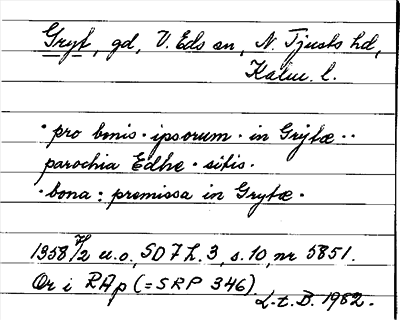 Gryt, gd, V. Eds sn, N. Tjusts hd,
Kalm. l.
· pro bonis · ipsorum · in Grÿtæ ··
parochia Edhe · sitis ·
· bona : premissa in Grytæ ·
1358 7/2 u.o, SD 7 h. 3, s. 10, nr 5851.
Or i RAp (= SRP 346)
L.t.B. 1982.